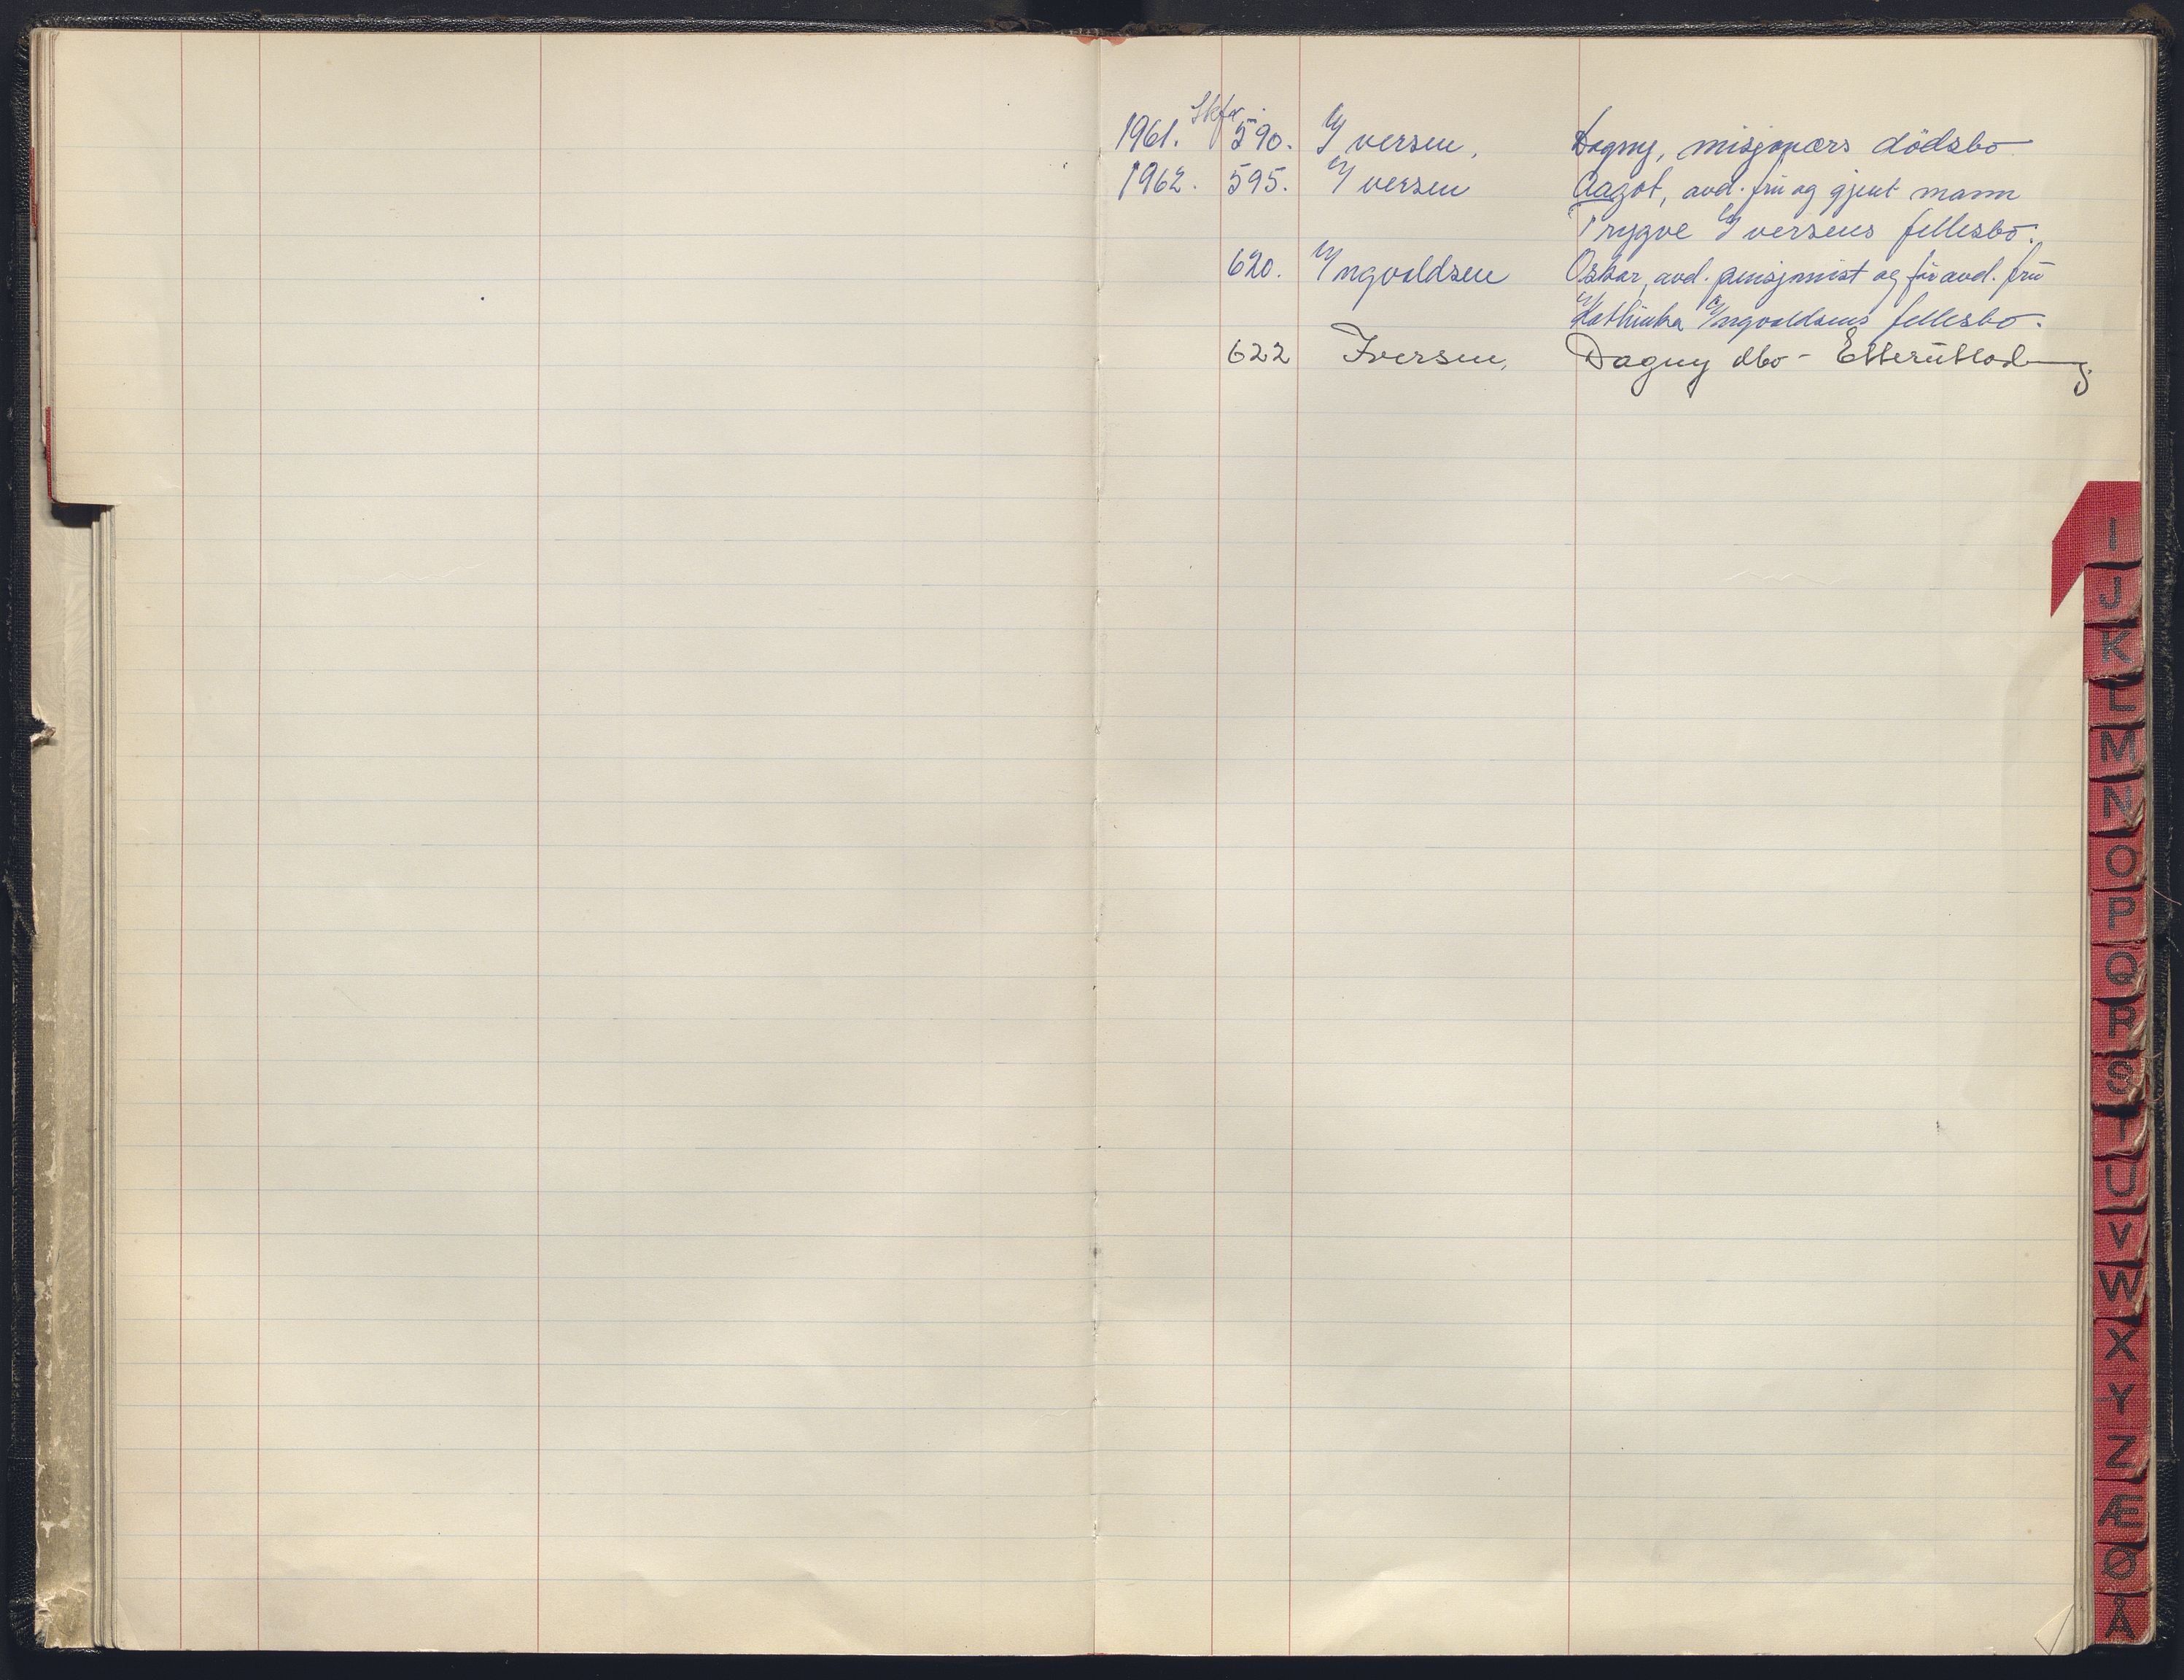 Skfr.
1961. 590. Iversen, Dagny, misjonærs dödsbo
1962. 595. Iversen Aagot, avd. fru og gjent mann
Trygve Iversens fellesbo.
620. Ingvaldsen Oskar, avd. pensjonist og før avd. fru
Kathinka Ingvaldsens fellesbo.
622 Iversen, Dagny dbo - Etterutlodning.
I
J
K
L
M
N
O
P
Q
R
S
T
U
V
W
X
Y
Z
Æ
Ø
Å